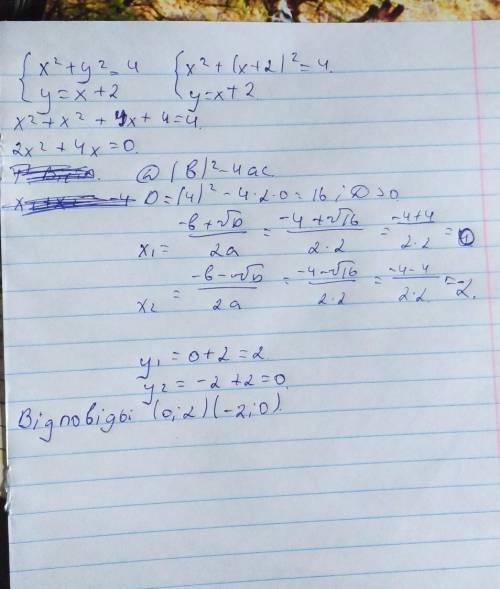 { x² + y² = 4 { x² + (x+2)² = 4
{ y = x + 2 { y = x + 2
x² + x² + 4x + 4 = 4
2x² + 4x = 0
D (b)² - 4ac
D = (4)² - 4·2·0 = 16 ; D > 0
x₁ = (-b + √D)/2a = (-4 + √16)/2·2 = (-4+4)/2·2 =
x₂ = (-b - √D)/2a = (-4 - √16)/2·2 = (-4-4)/2·2 = -2.
y₁ = 0 + 2 = 2
y₂ = -2 + 2 = 0
Відповідь (0;2) (-2;0).